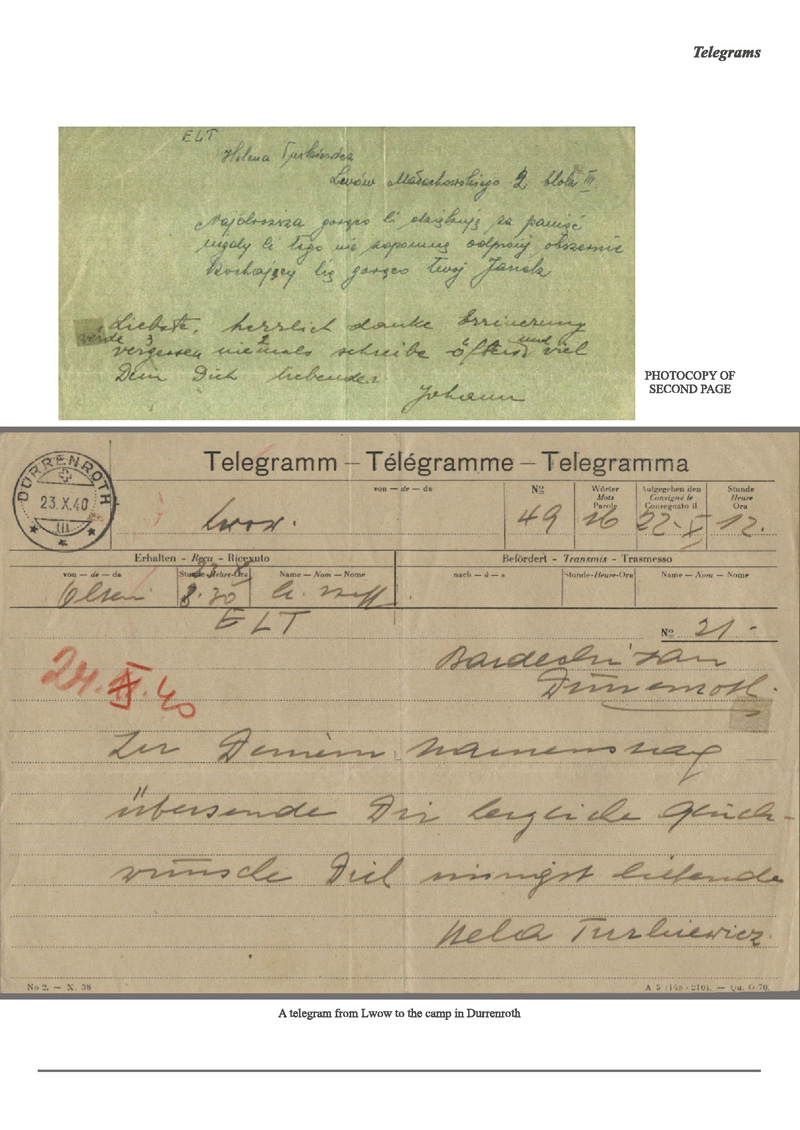 Telegrams
ELT
Helena Turkiewicz
Lwów Małachowskiego 2 bloka III.
Najdroższa gorąco Ci dziękuję za pamięć
nigdy Ci tego nie zapomnę odpisuj obszernie
Kochający Cię gorąco Twój Janek
Liebste, herzlich danke Errinerung
werde 3 2 und
vergessen niemals schreibe öfters viel
Dein Dich liebender
Johann
PHOTOCOPY OF
SECOND PAGE
Telegramm — Télégramme — Telegramma
DÜRRENROTH
23.X.40
von — de — da
Lwow.
Nº
49
Wörter
Mots
Parole
16
Aufgegeben den
Consigné le
Consegnato il
22. X
Stunde
Heure
Ora
12.
Erhalten - Reçu - Ricevuto
Befördert - Transmis - Trasmesso
von — de — da
Stunde-Heure-Ora
Name — Nom — Nome
nach — à — a
Stunde-Heure-Ora
Name — Nom — Nome
8.30
ELT
Nº 21.-
24.X.40
Dürrenroth.
Zu Deinem Namenstag
übersende Dir herzliche Glück-
wünsche Dich innigst liebende
Hela Turkiewicz.
No 2. — X. 38
A 5 (148×210). — Qu. O.70.
A telegram from Lwow to the camp in Durrenroth